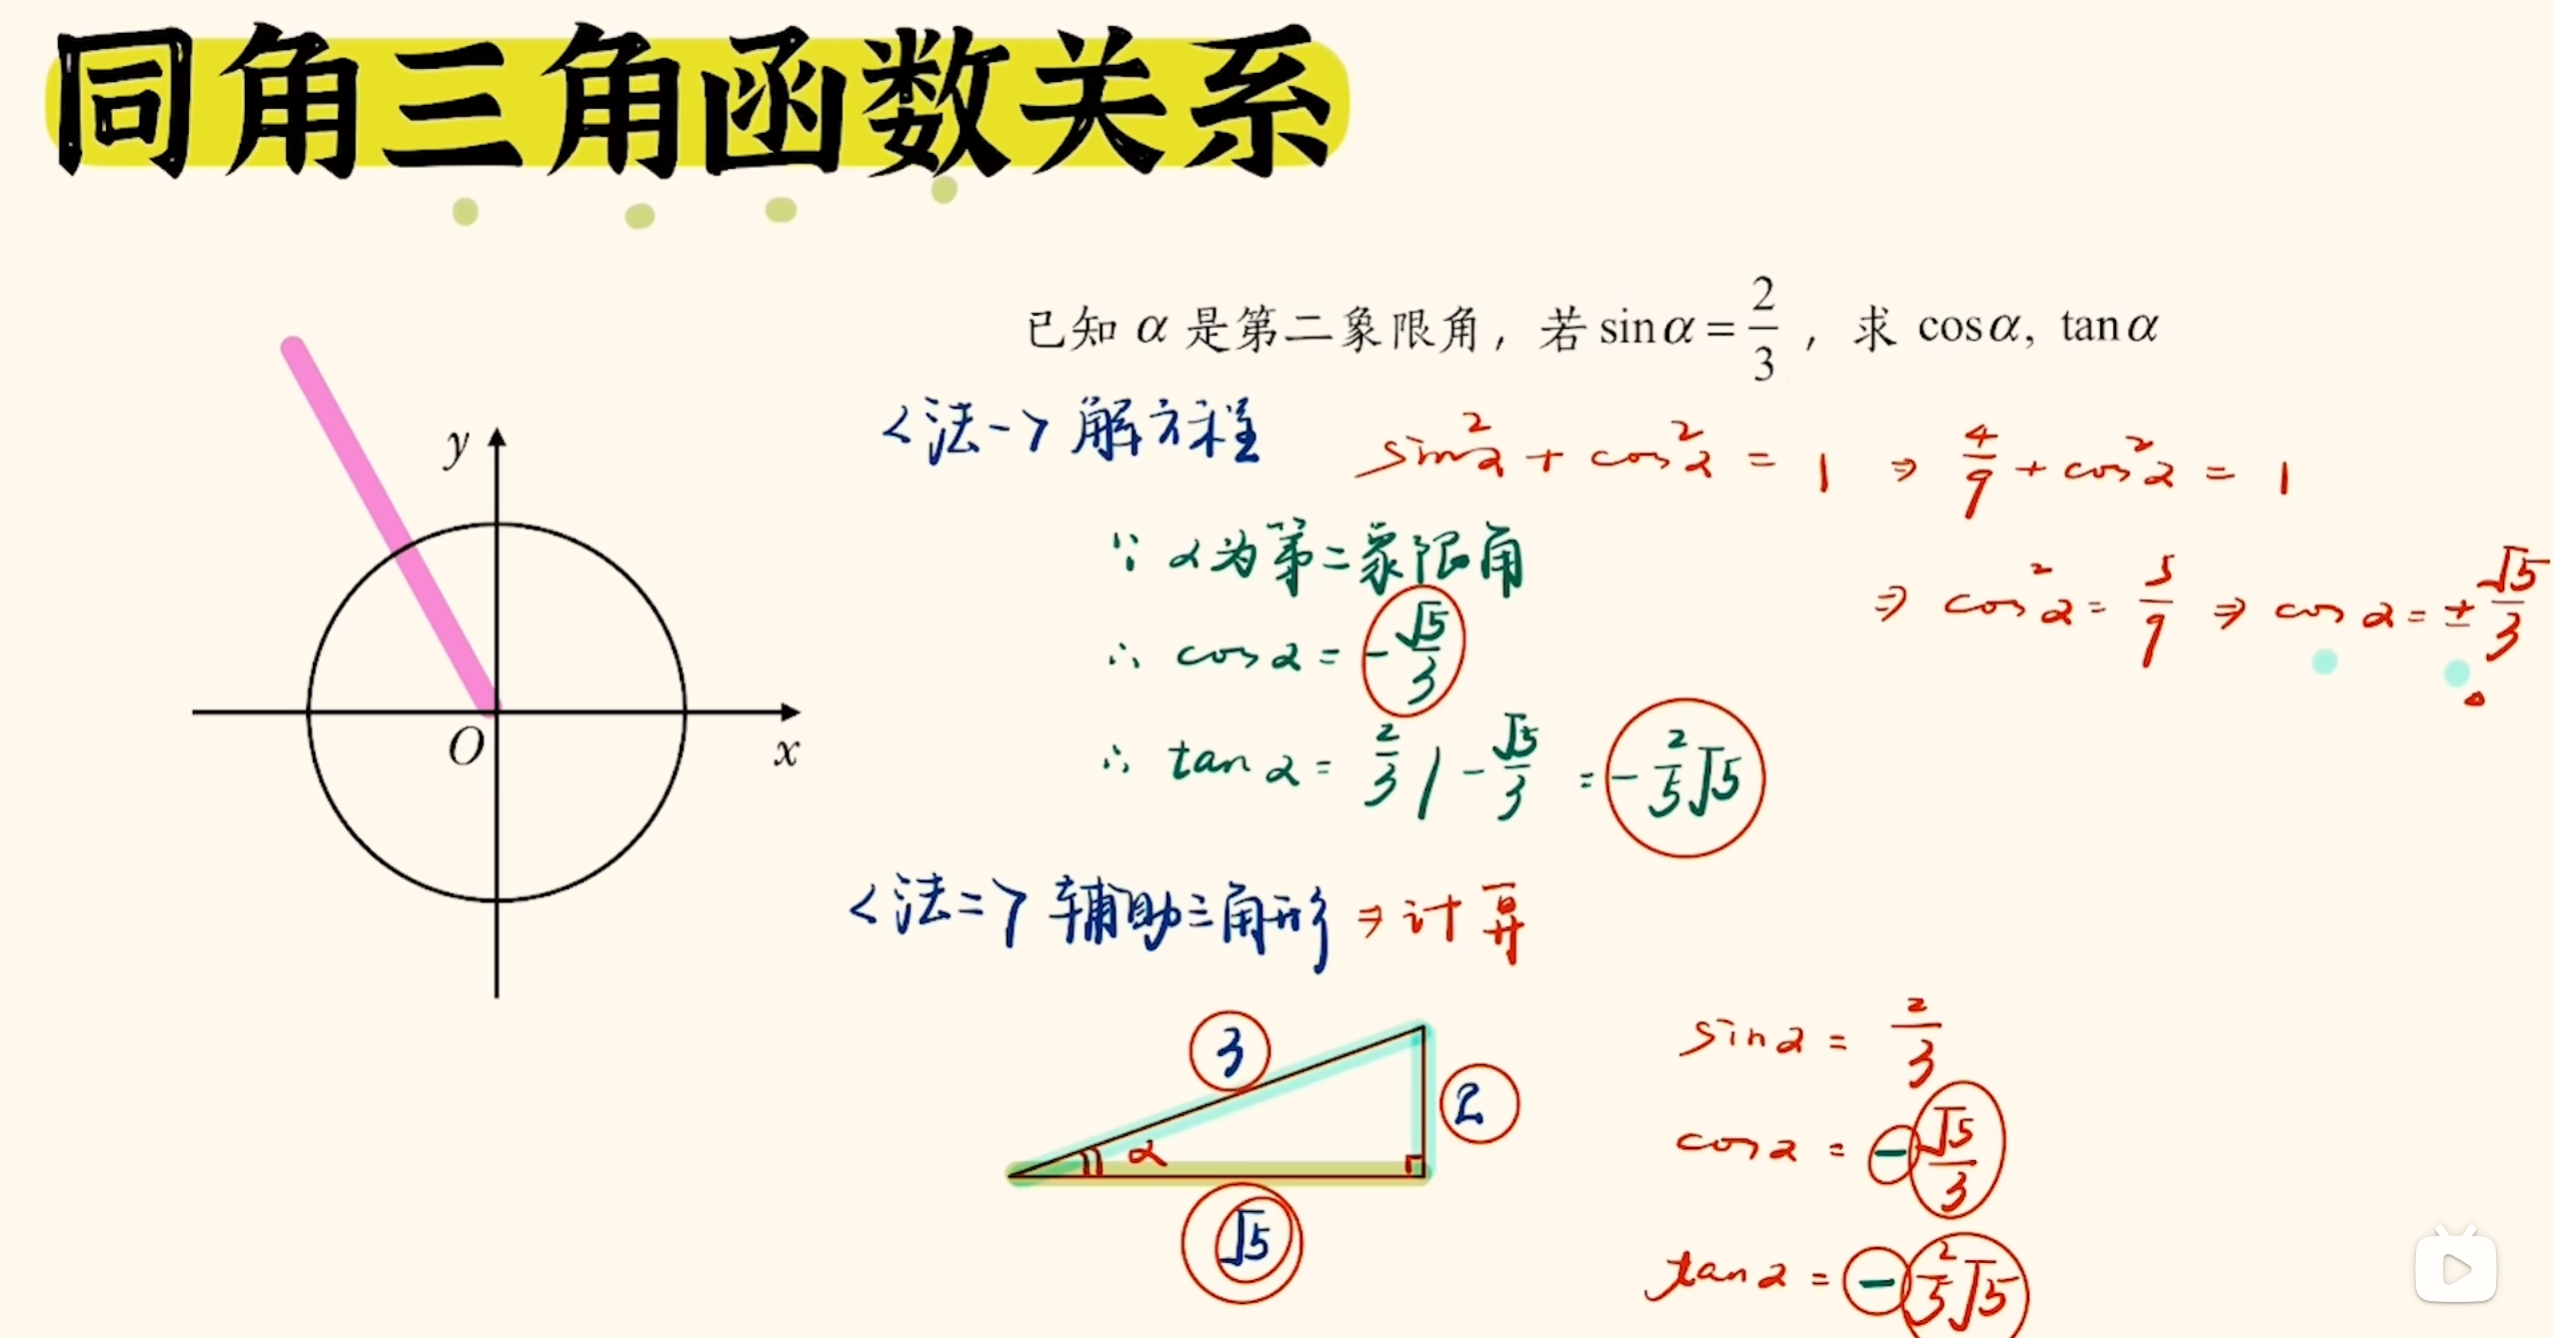 同角三角函数关系
已知 α 是第二象限角，若 sinα = 2/3 ，求 cosα, tanα
<法一> 解方程 sin²α + cos²α = 1 ⇒ 4/9 + cos²α = 1
⇒ cos²α = 5/9 ⇒ cosα = ± √5/3
∵ α为第二象限角
∴ cosα = -√5/3
∴ tanα = 2/3 / -√5/3 = -2/5√5
y
O
x
<法二> 辅助三角形 ⇒ 计算
3
2
α
√5
sinα = 2/3
cosα = -√5/3
tanα = -2/5√5